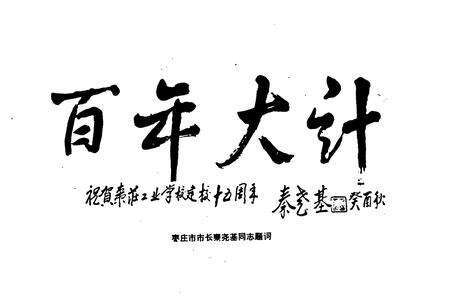 百年大计
祝贺枣莊工业学校建校十五周年 秦尧基 癸酉秋
枣庄市市长秦尧基同志题词